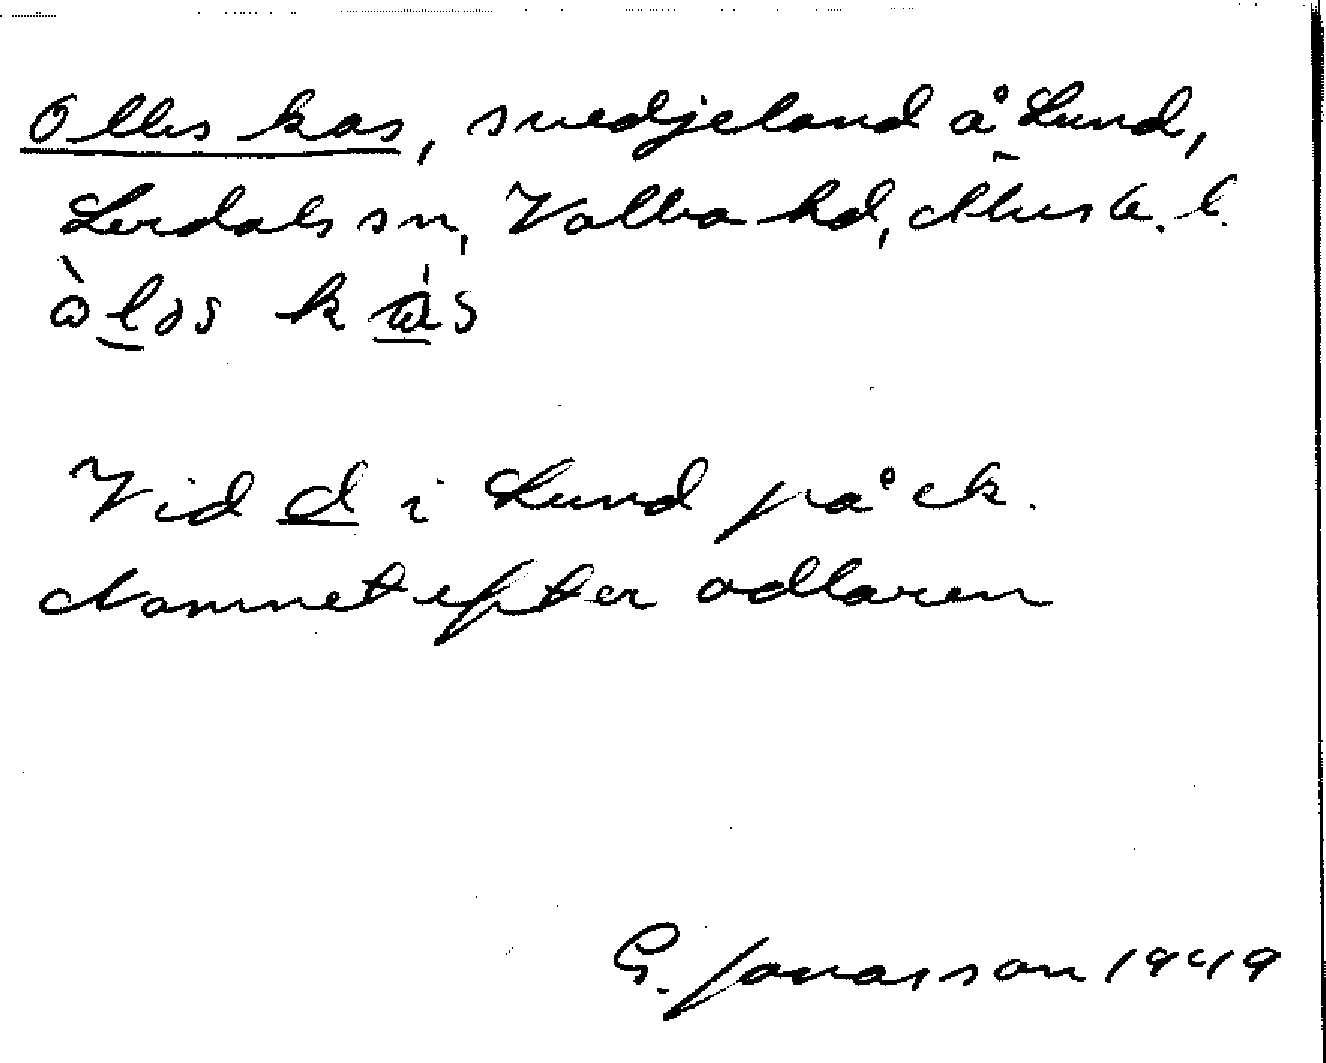 Olles kas, svedjeland å Lund,
Lerdals sn, Valbo hd, Älvsb. l.
Vid d i Lund på ek.
Namnet efter odlaren
G. Jonasson 1949